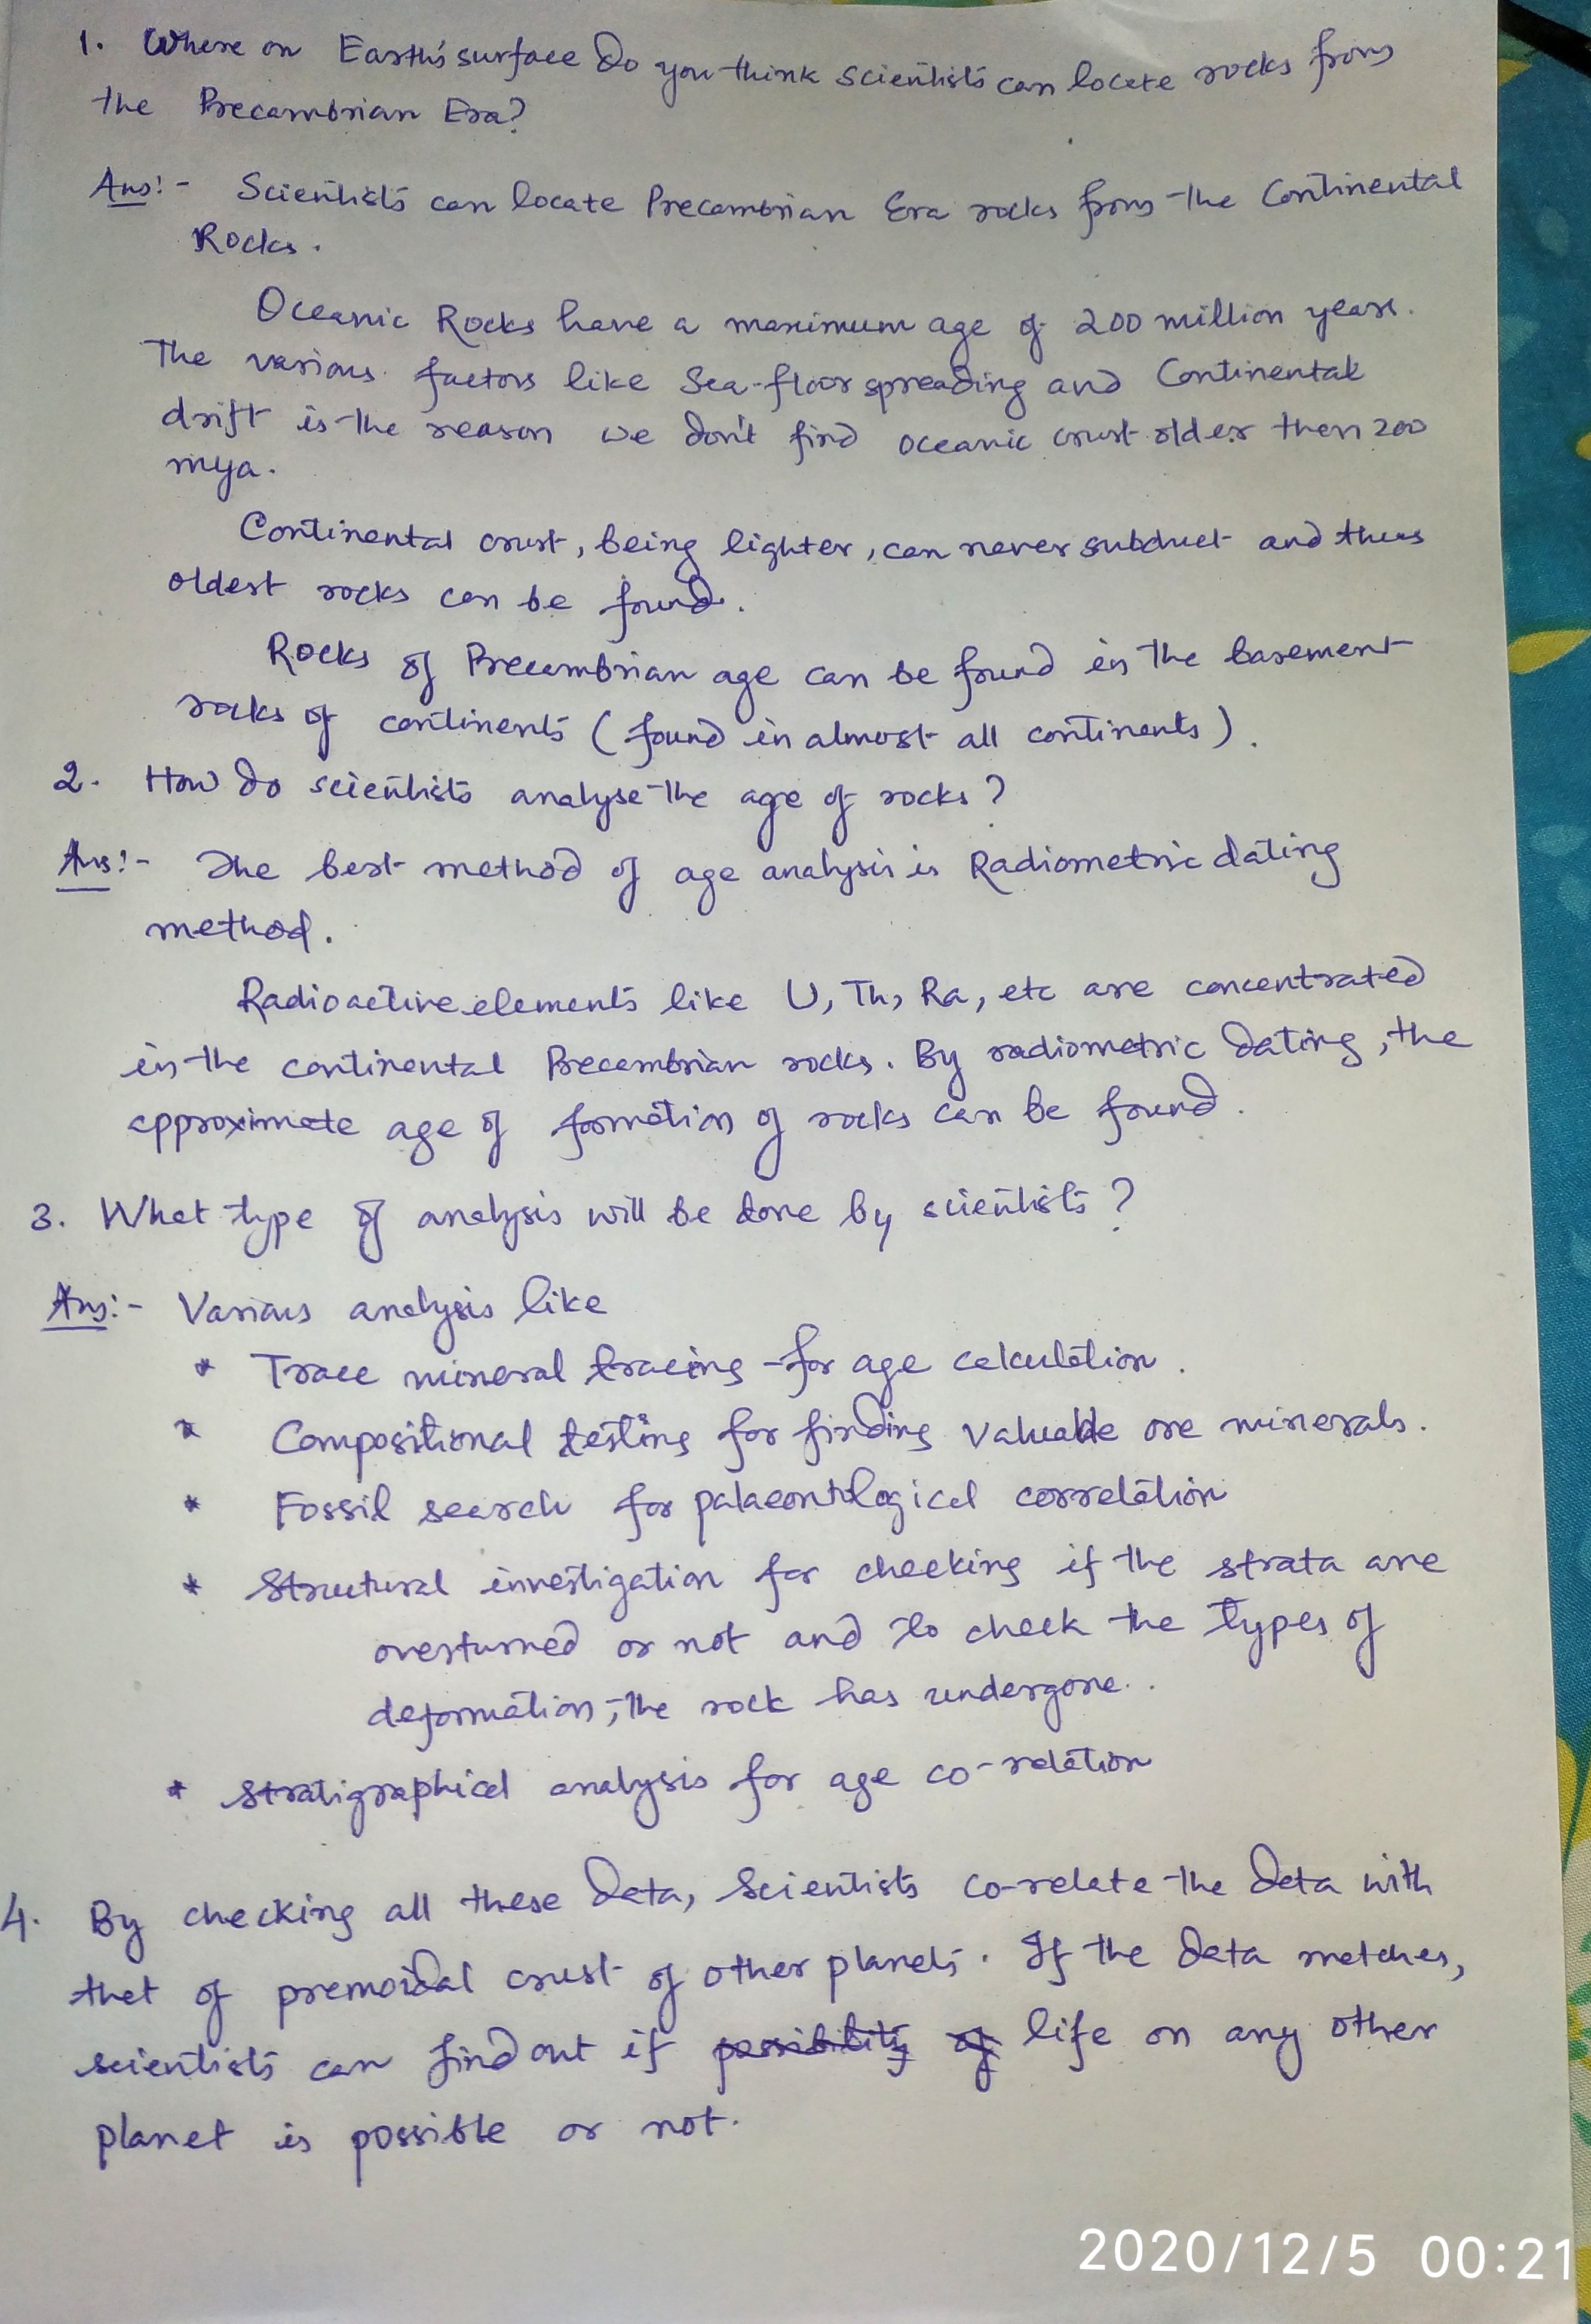 1. Where on Earth's surface do you think scientists can locate rocks from
the Precambrian Era?
Ans:- Scientists can locate Precambrian Era rocks from the Continental
Rocks.
Oceanic Rocks have a maximum age of 200 million years.
The various factors like Sea-floor spreading and Continental
drift is the reason we don't find oceanic crust older then 200
mya.
Continental crust, being lighter, can never subduct and thus
oldest rocks can be found.
Rocks of Precambrian age can be found in the basement
rocks of continents (found in almost all continents).
2. How do scientists analyse the age of rocks?
Ans:- The best method of age analysis is Radiometric dating
method.
Radioactive elements like U, Th, Ra, etc are concentrated
in the continental Precambrian rocks. By radiometric dating, the
approximate age of formation of rocks can be found.
3. What type of analysis will be done by scientists?
Ans:- Various analysis like
* Trace mineral tracing - for age calculation.
* Compositional testing for finding valuable ore minerals.
* Fossil search for palaeontological correlation
* Structural investigation for checking if the strata are
overturned or not and to check the types of
deformation, the rock has undergone.
* Stratigraphical analysis for age co-relation
4. By checking all these data, Scientists co-relate the data with
that of premoidal crust of other planets. If the data matches,
scientists can find out if possibility of life on any other
planet is possible or not.
2020/12/5 00:21